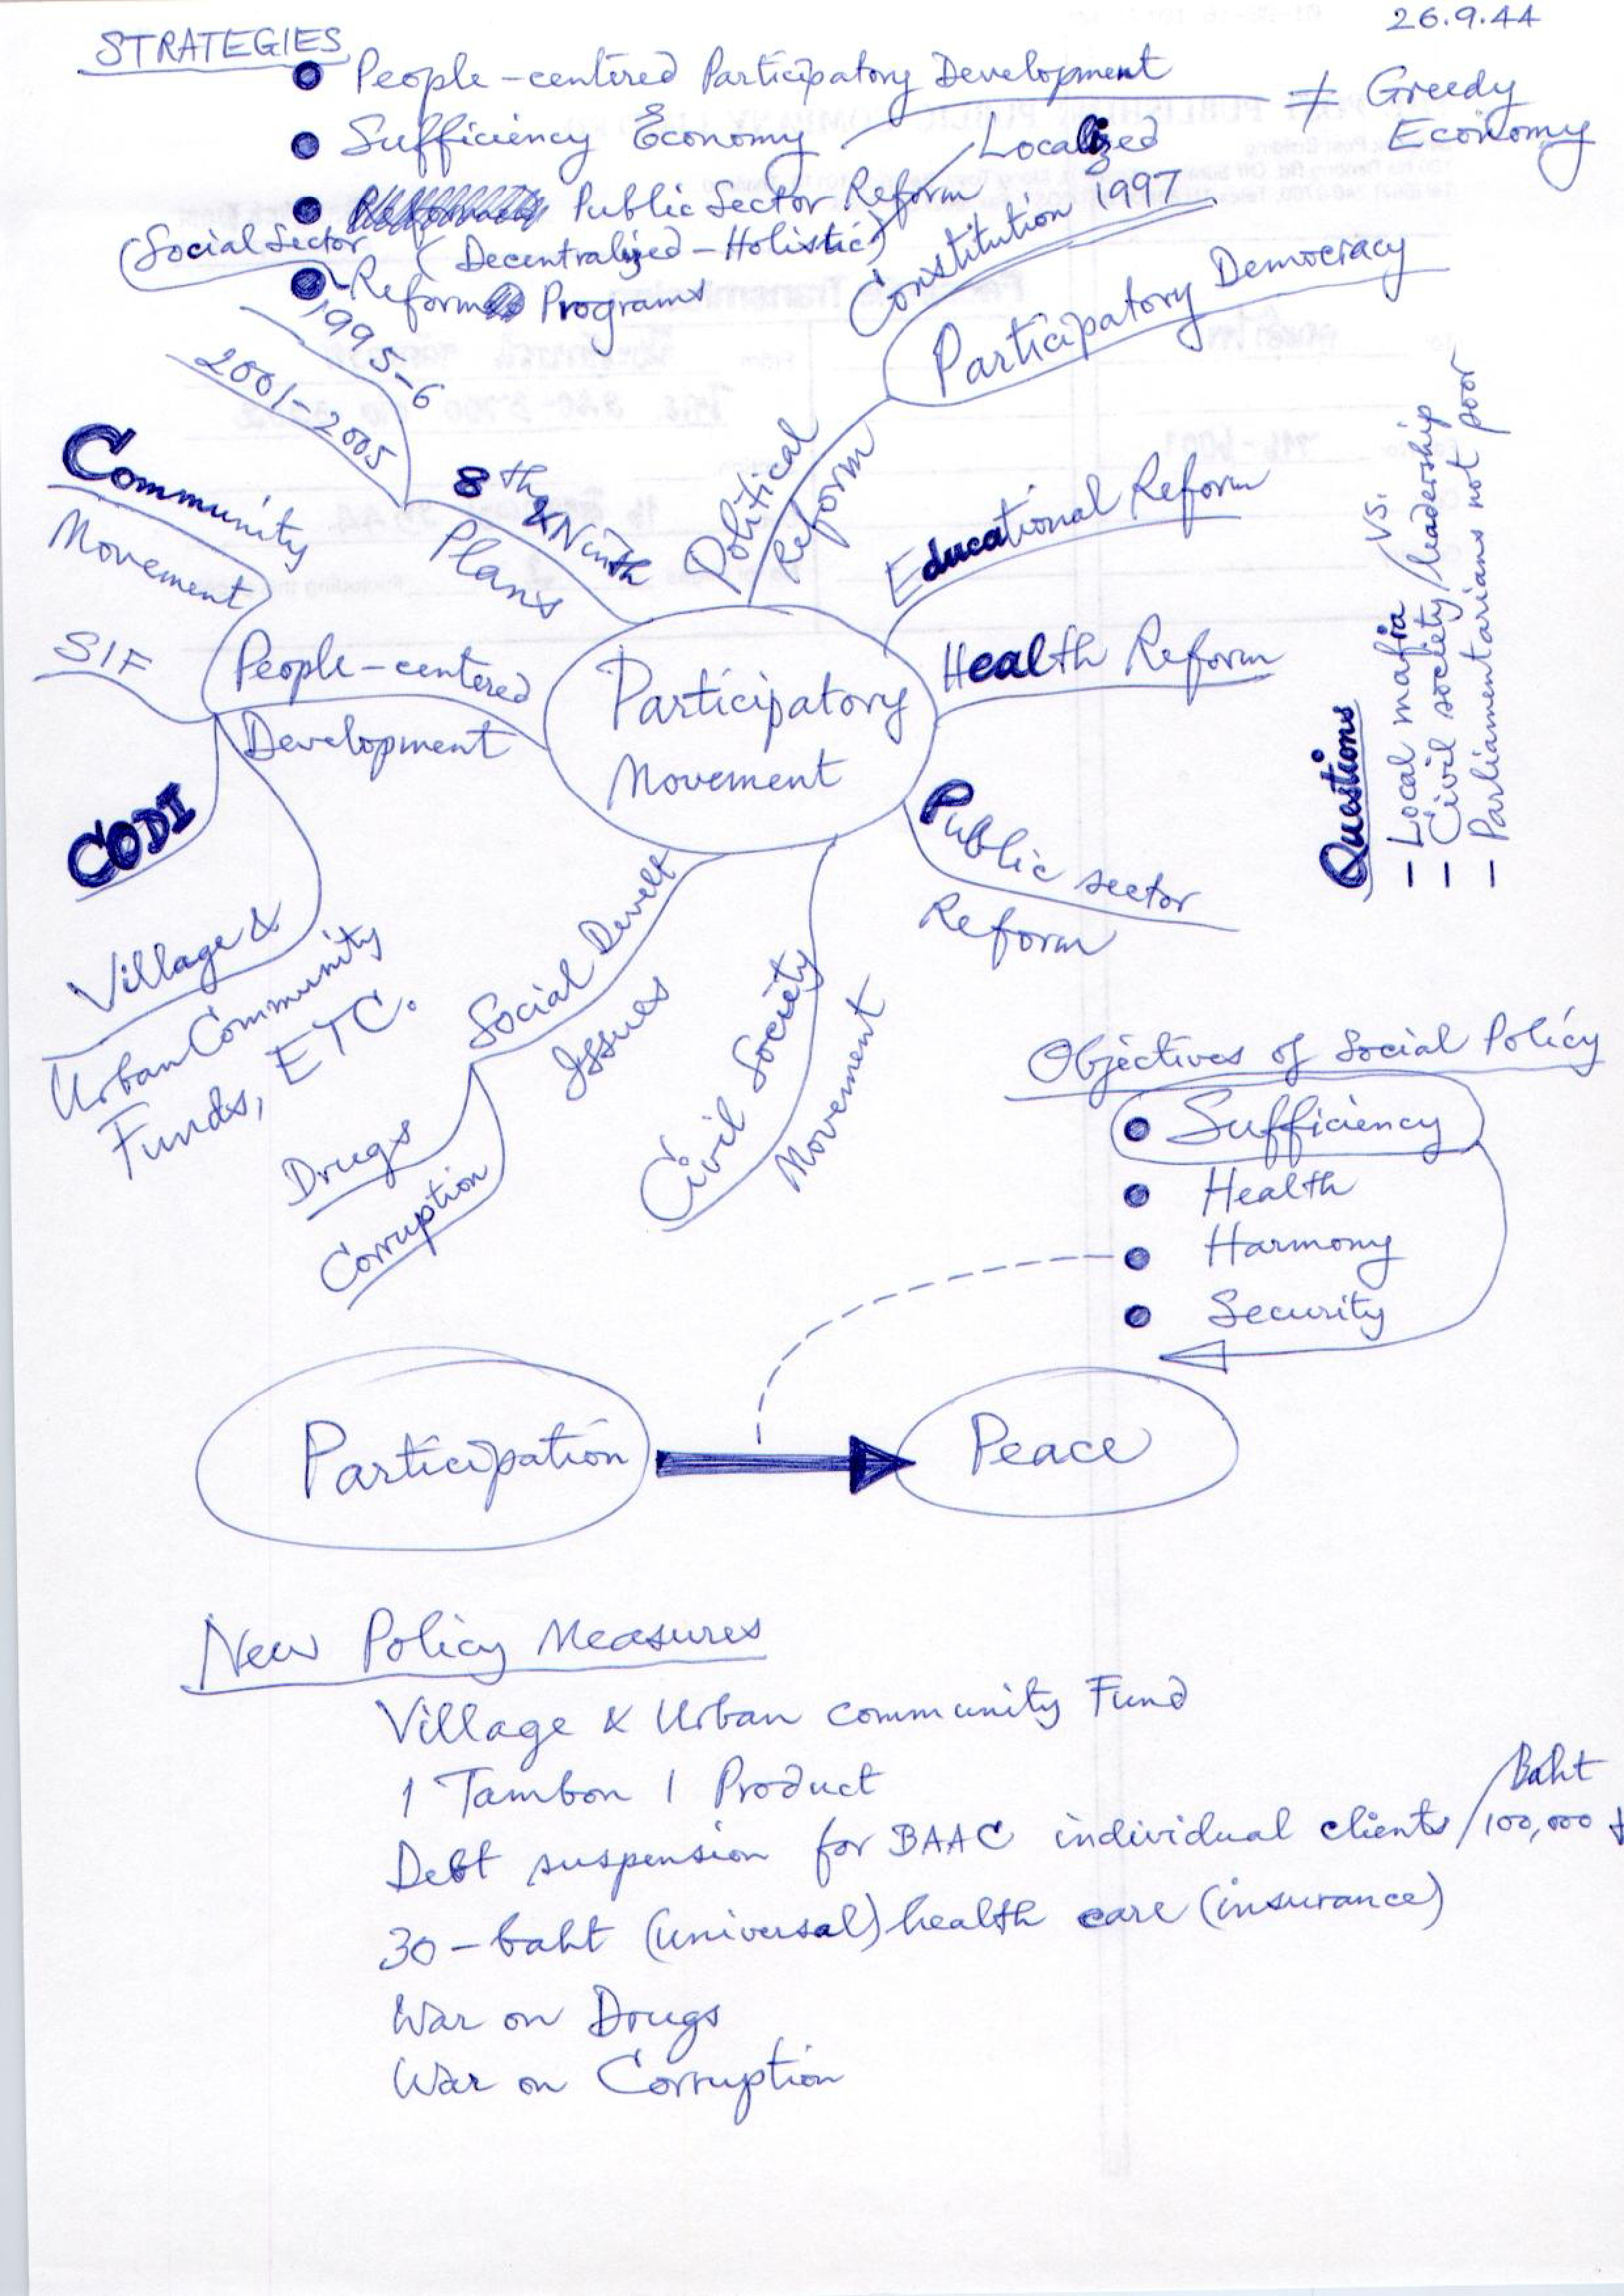 26.9.44
STRATEGIES
People-centered Participatory Development
≠ Greedy
Economy
Sufficiency Economy
Localized
Public Sector Reform
(Decentralized-Holistic)
Social Sector
Reform Programs
Constitution 1997
Participatory Democracy
1995-6
2001-2005
8th & Ninth
Plans
Political
Reform
Educational Reform
Health Reform
Public sector
Reform
Community
Movement
SIF
People-centered
Development
CODI
Village &
Urban Community
Funds, ETC.
Participatory
Movement
Social Develt
Issues
Drugs
Corruption
Civil Society
Movement
Questions
- Local mafia vs.
- Civil society/leadership
- Parliamentarians not poor
Objectives of Social Policy
Sufficiency
Health
Harmony
Security
Participation
Peace
New Policy Measures
Village & Urban community Fund
1 Tambon 1 Product
Baht
Debt suspension for BAAC individual clients/100,000
30-baht (universal) health care (insurance)
War on Drugs
War on Corruption